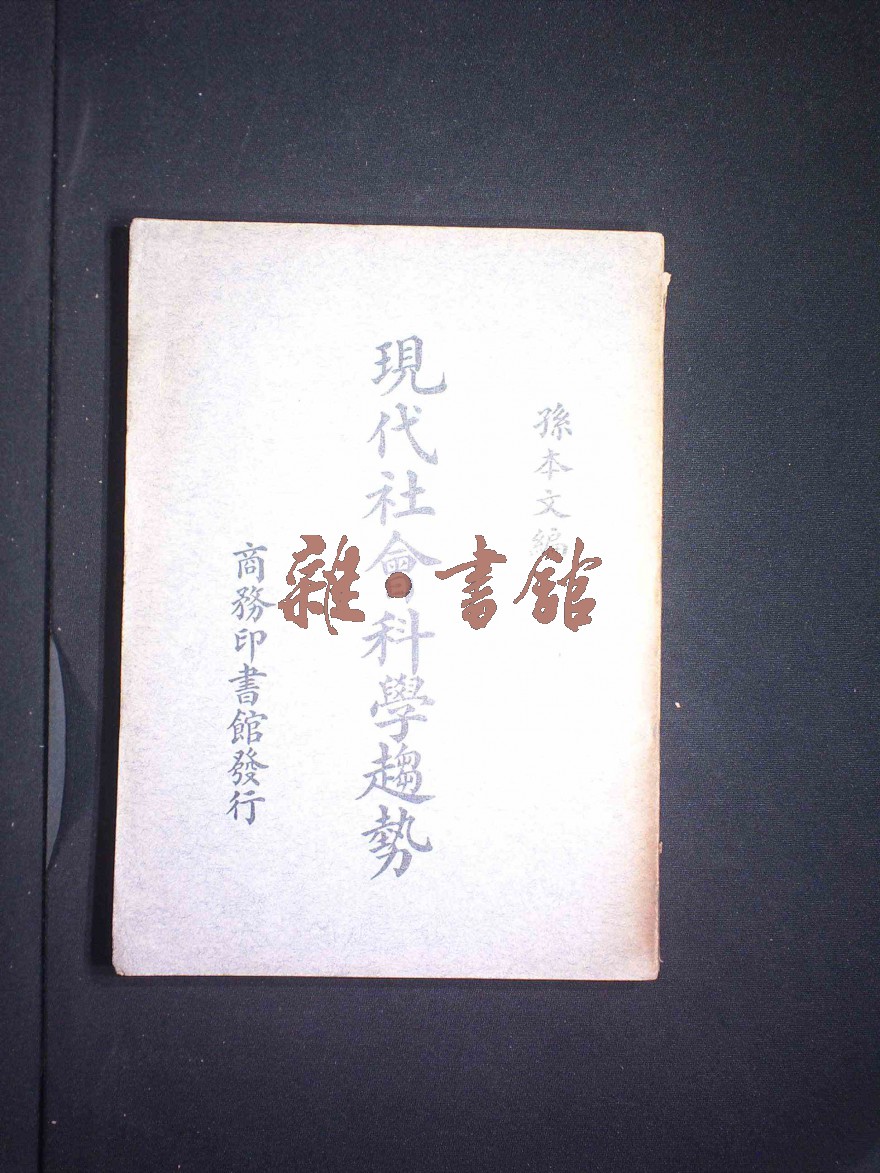 孫本文編
現代社會科學趨勢
商務印書館發行
雜·書館